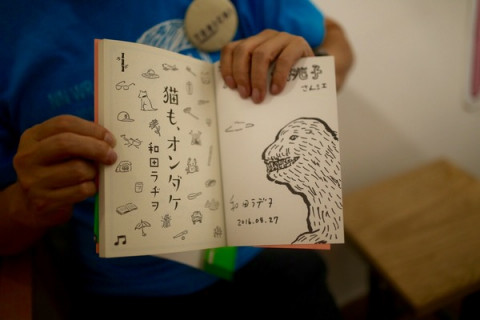 猫も、オンダケ
和田ラヂヲ
さんエ
和田ラヂヲ
2016.08.27